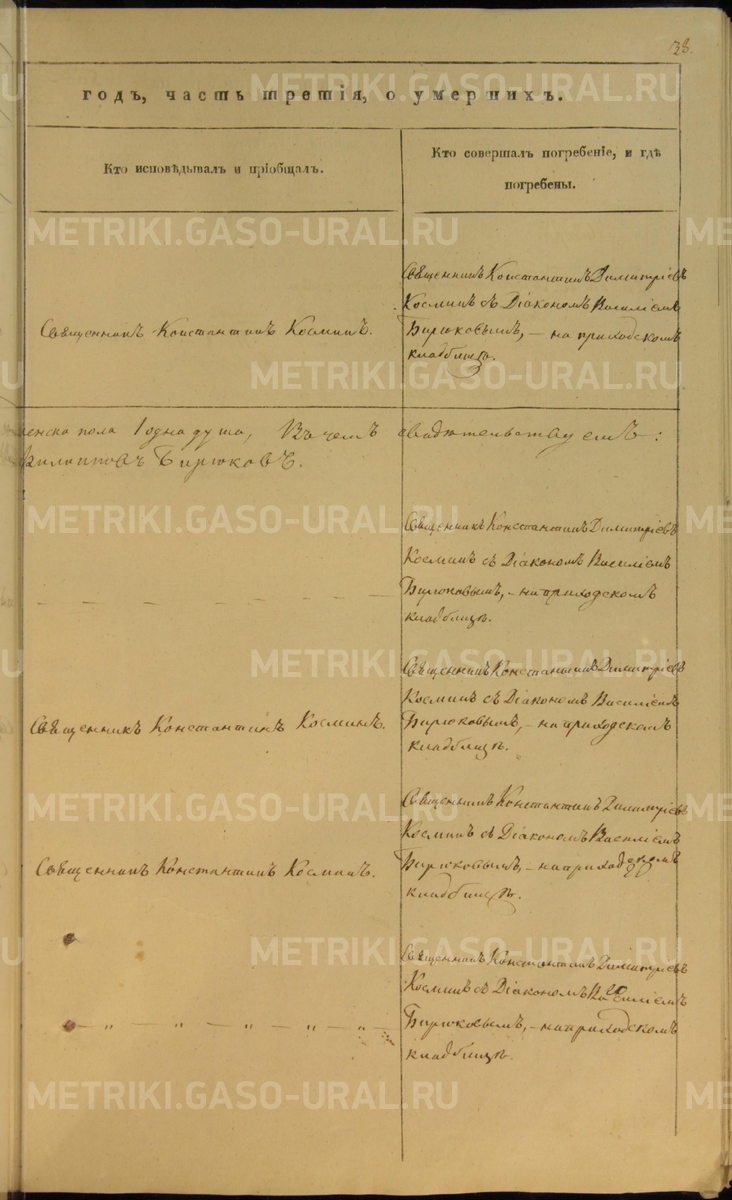 38.
годъ, часть третія, о умершихъ.
Кто исповѣдывалъ и пріобщалъ.
Кто совершалъ погребеніе, и гдѣ
погребены.
Священникъ Константинъ Косминъ.
Священникъ Константинъ Димитріевъ
Косминъ съ Діакономъ Василіемъ
Бирюковымъ, – на приходскомъ
кладбищѣ.
женска пола 1 одна душа, Въ чемъ свидѣтельствуемъ:
Филипповъ Бирюковъ.
Священникъ Константинъ Димитріевъ
Косминъ съ Діакономъ Василіемъ
Бирюковымъ, – на приходскомъ
кладбищѣ.
Священникъ Константинъ Косминъ.
Священникъ Константинъ Димитріевъ
Косминъ съ Діакономъ Василіемъ
Бирюковымъ, – на приходскомъ
кладбищѣ.
Священникъ Константинъ Косминъ.
Священникъ Константинъ Димитріевъ
Косминъ съ Діакономъ Василіемъ
Бирюковымъ, – на приходскомъ
кладбищѣ.
— „ — „ — „ — „ —
Священникъ Константинъ Димитріевъ
Косминъ съ Діакономъ Василіемъ
Бирюковымъ, – на приходскомъ
кладбищѣ.
METRIKI.GASO-URAL.RU